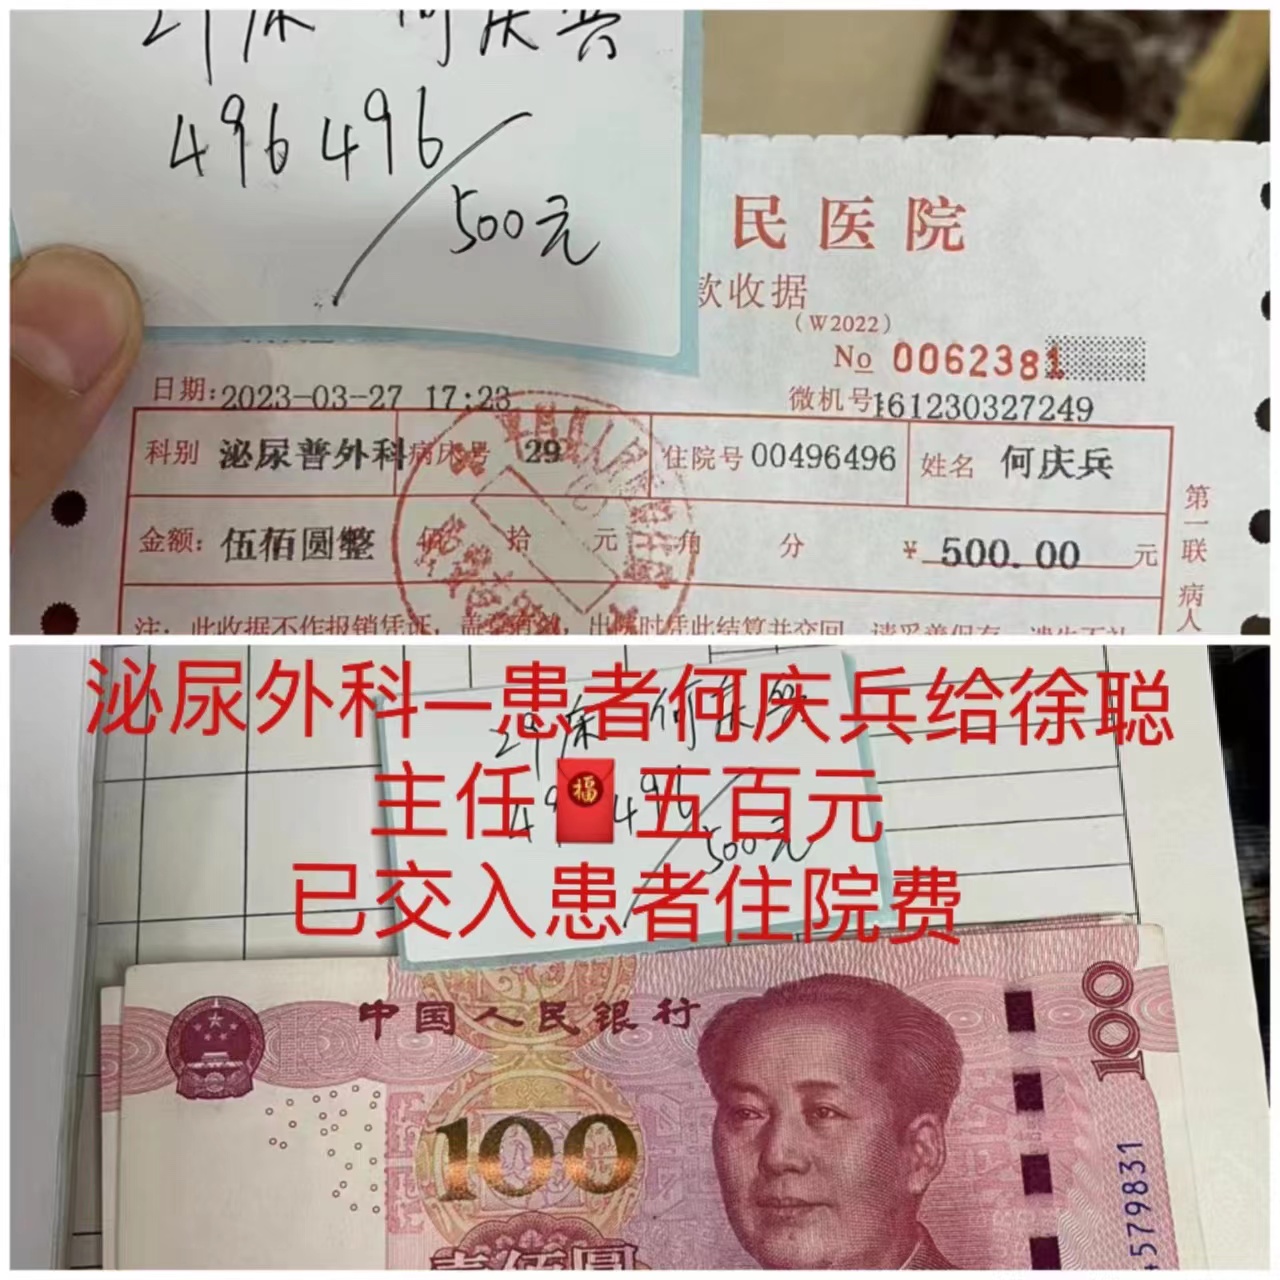 29床 何庆兵
496496
500元
民医院
款收据
（W2022）
No 0062381
日期:2023-03-27 17:23
微机号161230327249
科别 泌尿普外科 病床号 29 住院号 00496496 姓名 何庆兵
金额: 伍佰圆整 佰 拾 元 角 分 ¥ 500.00 元
第一联 病人
注: 此收据不作报销凭证, 盖章有效, 出院时凭此结算并交回, 请妥善保存, 遗失不补
泌尿外科—患者何庆兵给徐聪
主任🧧五百元
已交入患者住院费
29床 何庆兵
496496
500元
中国人民银行
100
100
壹佰圆
4579831